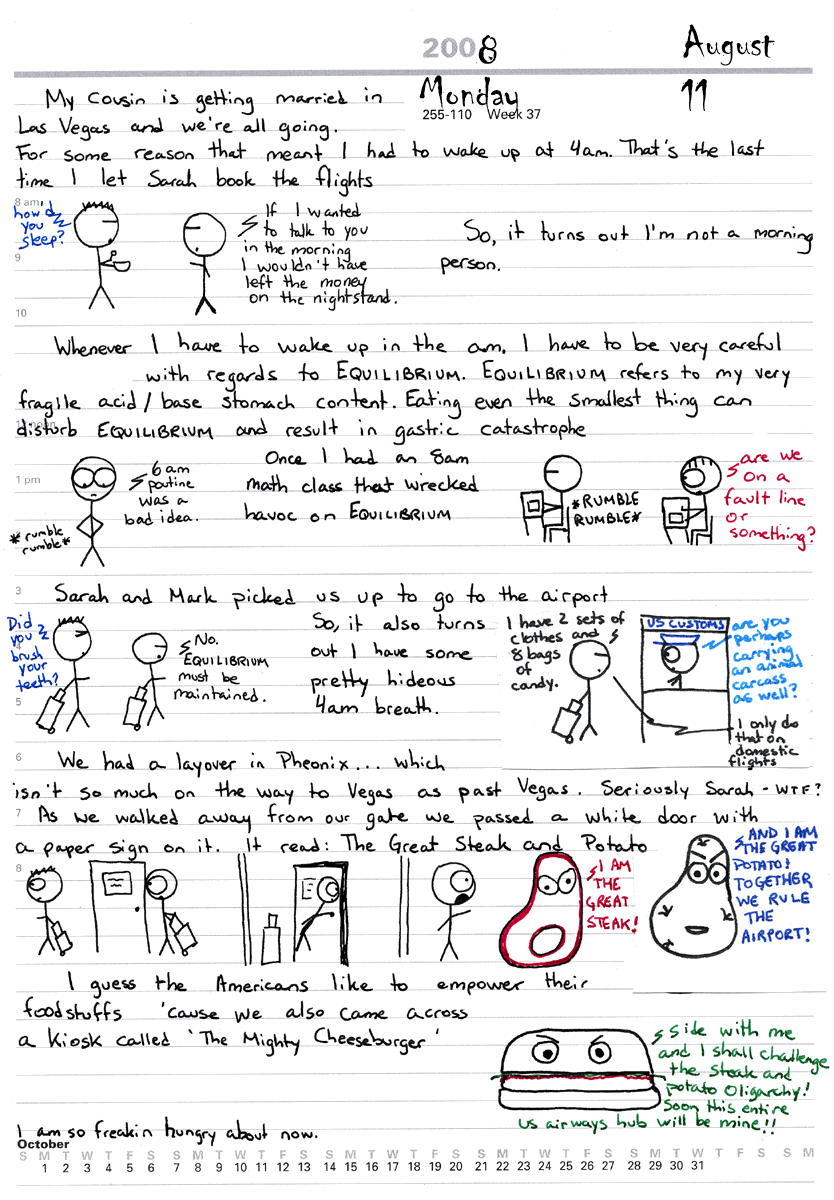 2008 August
Monday 11
255-110 Week 37
My cousin is getting married in
Las Vegas and we're all going.
For some reason that meant I had to wake up at 4am. That's the last
time I let Sarah book the flights
8 am
how'd
you
sleep?
If I wanted
to talk to you
in the morning
I wouldn't have
left the money
on the nightstand.
So, it turns out I'm not a morning
person.
9
10
Whenever I have to wake up in the am, I have to be very careful
with regards to EQUILIBRIUM. EQUILIBRIUM refers to my very
fragile acid/base stomach content. Eating even the smallest thing can
disturb EQUILIBRIUM and result in gastric catastrophe
1 pm
*rumble
rumble*
6 am
poutine
was a
bad idea.
Once I had an 8am
math class that wrecked
havoc on EQUILIBRIUM
*RUMBLE
RUMBLE*
are we
on a
fault line
or
something?
3
Sarah and Mark picked us up to go to the airport
Did
you
brush
your
teeth?
No.
EQUILIBRIUM
must be
maintained.
So, it also turns
out I have some
pretty hideous
4am breath.
5
I have 2 sets of
clothes and
8 bags
of
candy.
US CUSTOMS
are you
perhaps
carrying
an animal
carcass
as well?
I only do
that on
domestic
flights
6
We had a layover in Pheonix... which
isn't so much on the way to Vegas as past Vegas. Seriously Sarah - WTF?
7
As we walked away from our gate we passed a white door with
a paper sign on it. It read: The Great Steak and Potato
8
I AM
THE
GREAT
STEAK!
AND I AM
THE GREAT
POTATO!
TOGETHER
WE RULE
THE
AIRPORT!
I guess the Americans like to empower their
foodstuffs 'cause we also came across
a kiosk called 'The Mighty Cheeseburger'
Side with me
and I shall challenge
the steak and
potato Oligarchy!
Soon this entire
US airways hub will be mine!!
I am so freakin hungry about now.
October
S M T W T F S S M T W T F S S M T W T F S S M T W T F S S M T W T F S S M
1 2 3 4 5 6 7 8 9 10 11 12 13 14 15 16 17 18 19 20 21 22 23 24 25 26 27 28 29 30 31